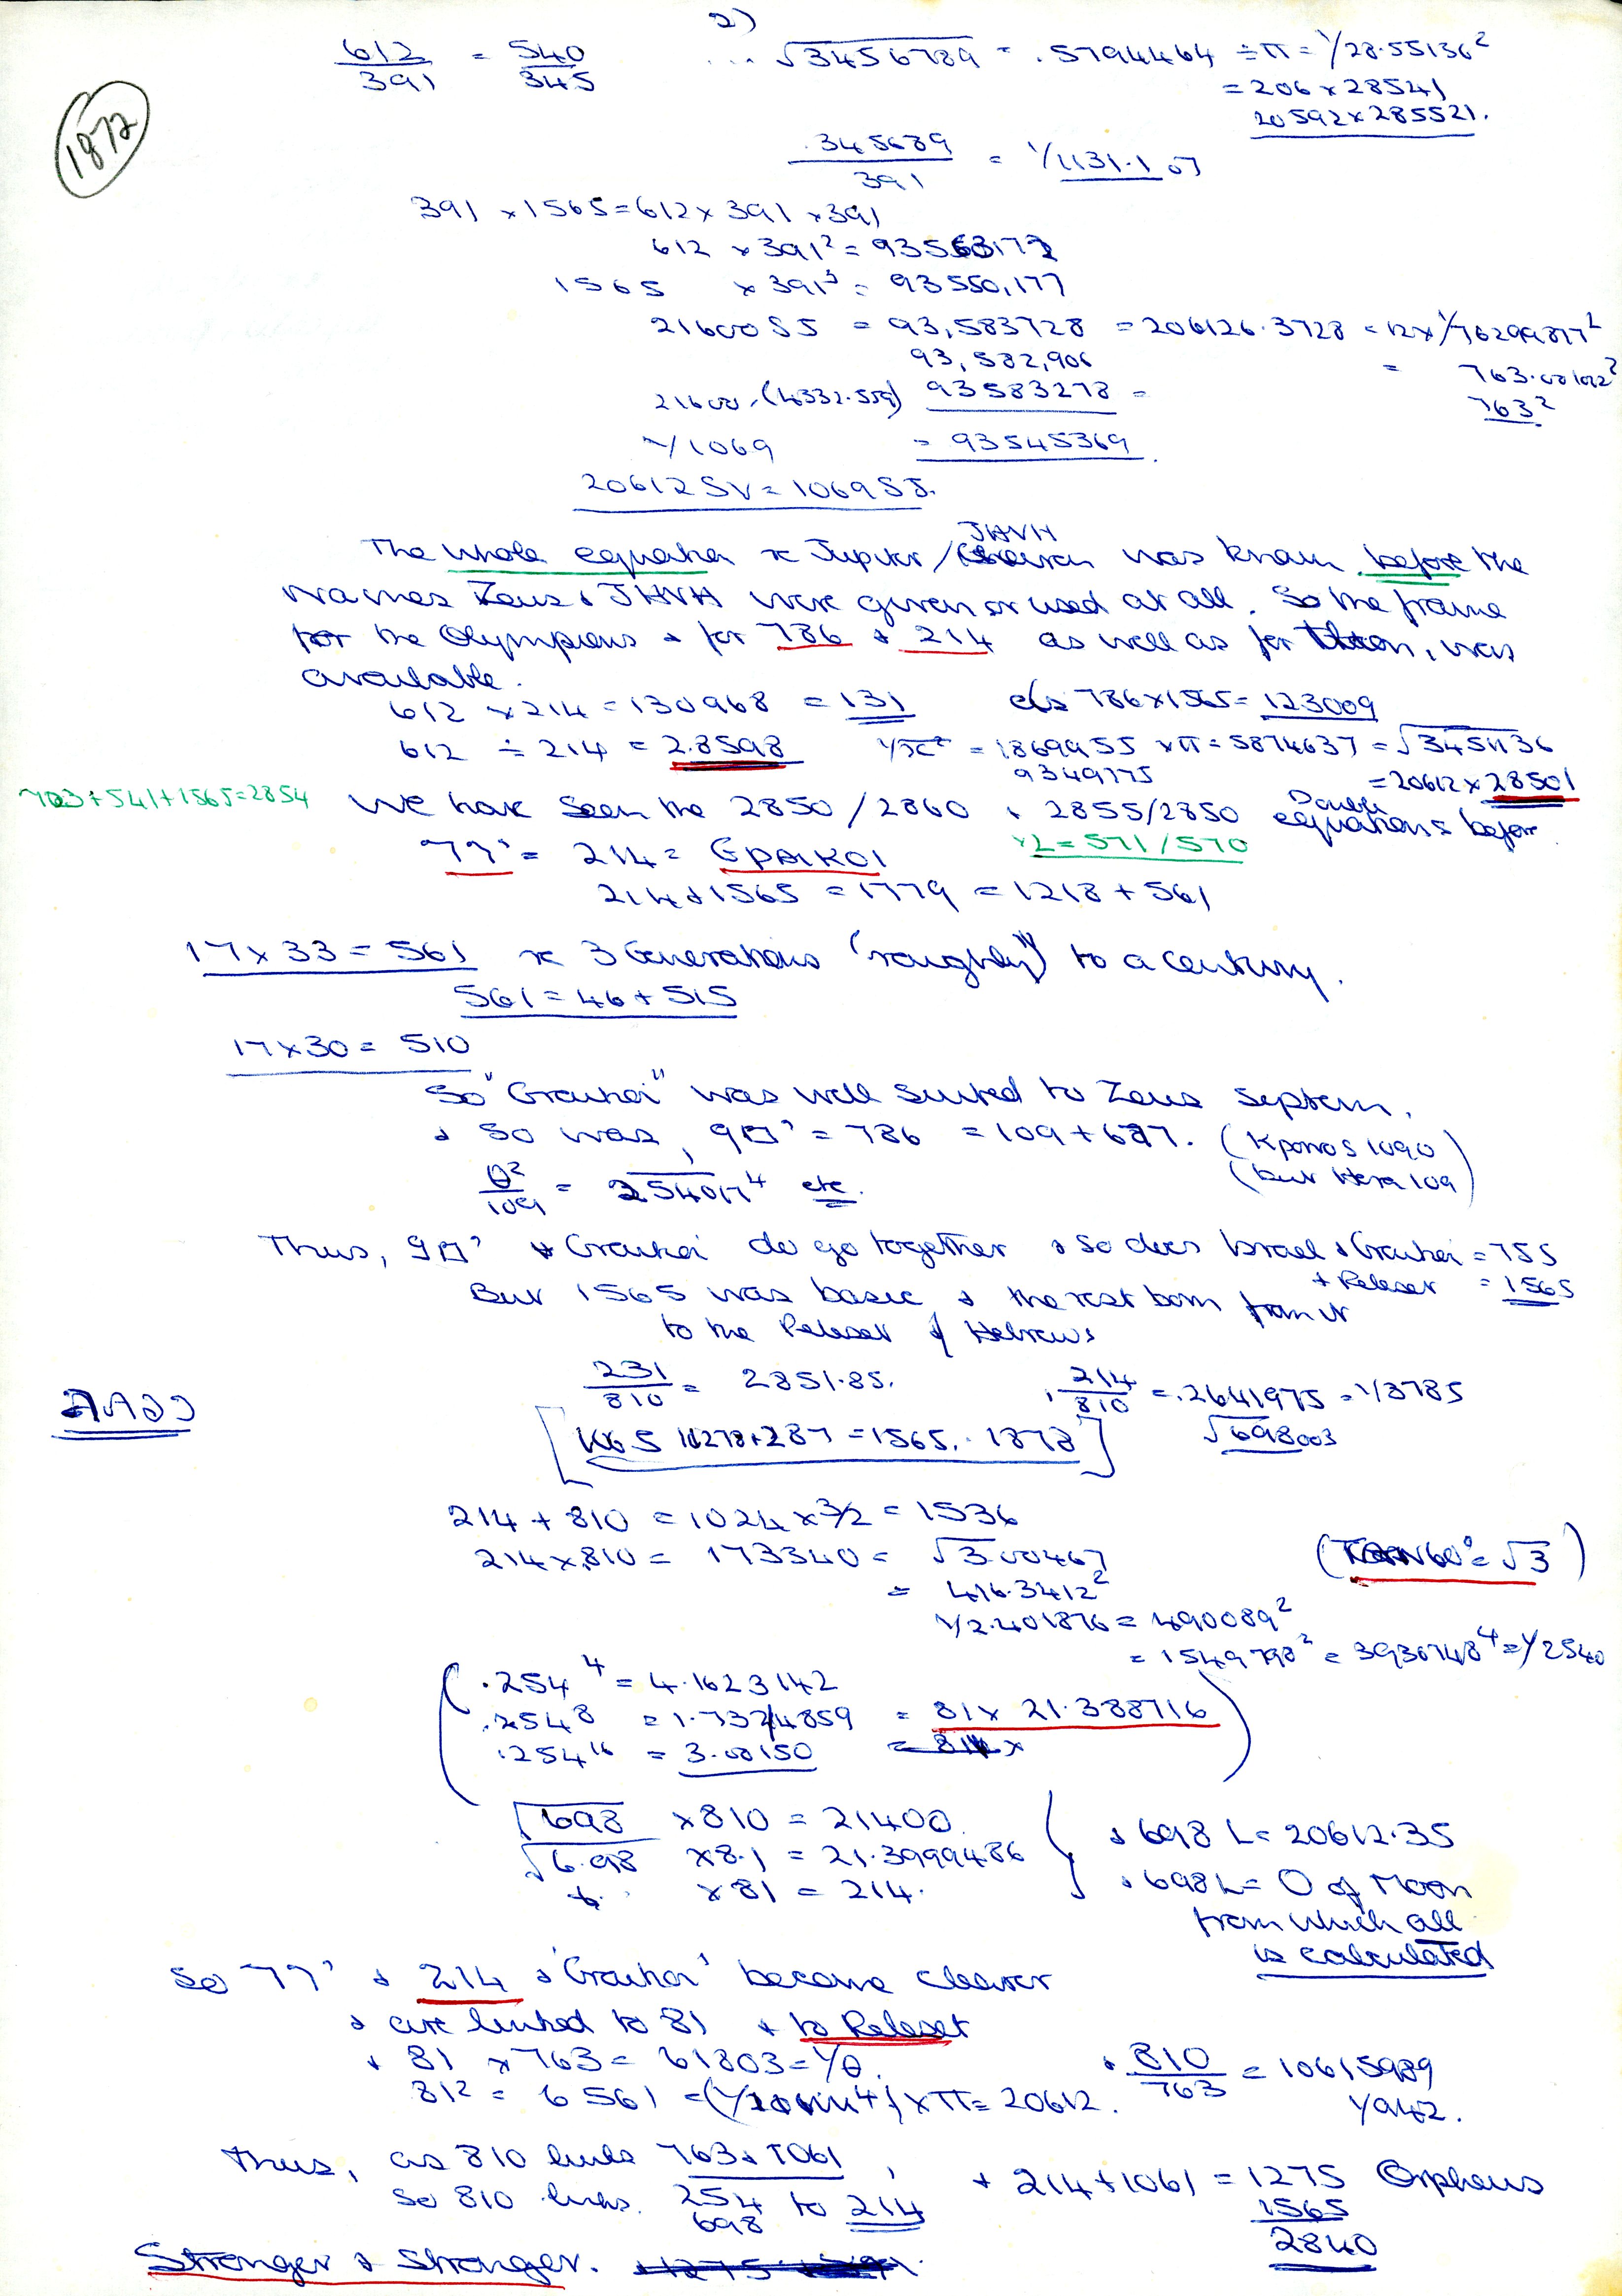 2)
612/391 = 540/345 ... √3456789 = .5794464 ÷ π = 1/28.55136²
= 206 x 28541
20592 x 285521.
1872
.345689/391 = 1/1131.107
391 x 1565 = 612 x 391 x 391
612 x 391² = 93563172
1565 x 391³ = 93550,177
21600 SJ = 93,583728 = 206126.3728 = 12 x 1/76299877²
93,582,906 = 763.001022²
21600 x (4332.559) 93583278 = 763²
1/1069 = 93545369
20612 SV = 1069 SJ.
JHVH
The whole equation x Jupiter / was known before the
names Zeus & JHVH were given or used at all. So the frame
for the Olympians & for 786 & 214 as well as for , was
available.
612 x 214 = 130968 = 131 786 x 1565 = 123009
612 ÷ 214 = 2.8598 = 1869955 x π = 5874637 = √3451136
9349775 = 20612 x 28501
703 + 541 + 1565 = 2854 We have seen the 2850/2860 & 2855/2850 Double equations before
x2 = 571/570
214 = Γραικοι
214 + 1565 = 1779 = 1218 + 561
17 x 33 = 561 x 3 Generations (roughly) to a century.
561 = 46 + 515
17 x 30 = 510
So "Graikoi" was well suited to Zeus system.
& so was, = 786 = 109 + 677. (Kronos 1090
(but Hera 109)
θ²/109 = 254017⁴ etc.
Thus, & Graikoi do go together & so does Israel & Graikoi = 755
+ Peleset = 1565
But 1565 was basic & the rest born from it
to the Peleset & Hebrews
231/810 = 2851.85. .214/810 = .2641975 = 1/3785
√698003
[ 1278 + 287 = 1565. 1878 ]
214 + 810 = 1024 x 3/2 = 1536
214 x 810 = 173340 = √3.00467 (Tan 60° = √3)
= 416.3412²
1/2.401876 = 490089²
= 1549798² = 3936748⁴ = 1/2540
(.254⁴ = 4.1623142
.254⁸ = 1.7324859 = 81 x 21.388716
.254¹⁶ = 3.00150
√698 x 810 = 21400 & 698 L = 20612.35
√6.98 x 8.1 = 21.3999486
x 81 = 214. & 698 L = O of Moon
from which all
is calculated
So & 214 & 'Graikoi' become clearer
& are linked to 81 & to Peleset
& 81 x 763 = 61803 = 1/θ. & 810/763 = 10615989
81² = 6561 = x π = 20612. 1/942.
Thus, as 810 links 763 & 1061, & 214 + 1061 = 1275 Orpheus
so 810 links 254 to 214 1565
698 2840
Stranger & Stranger.